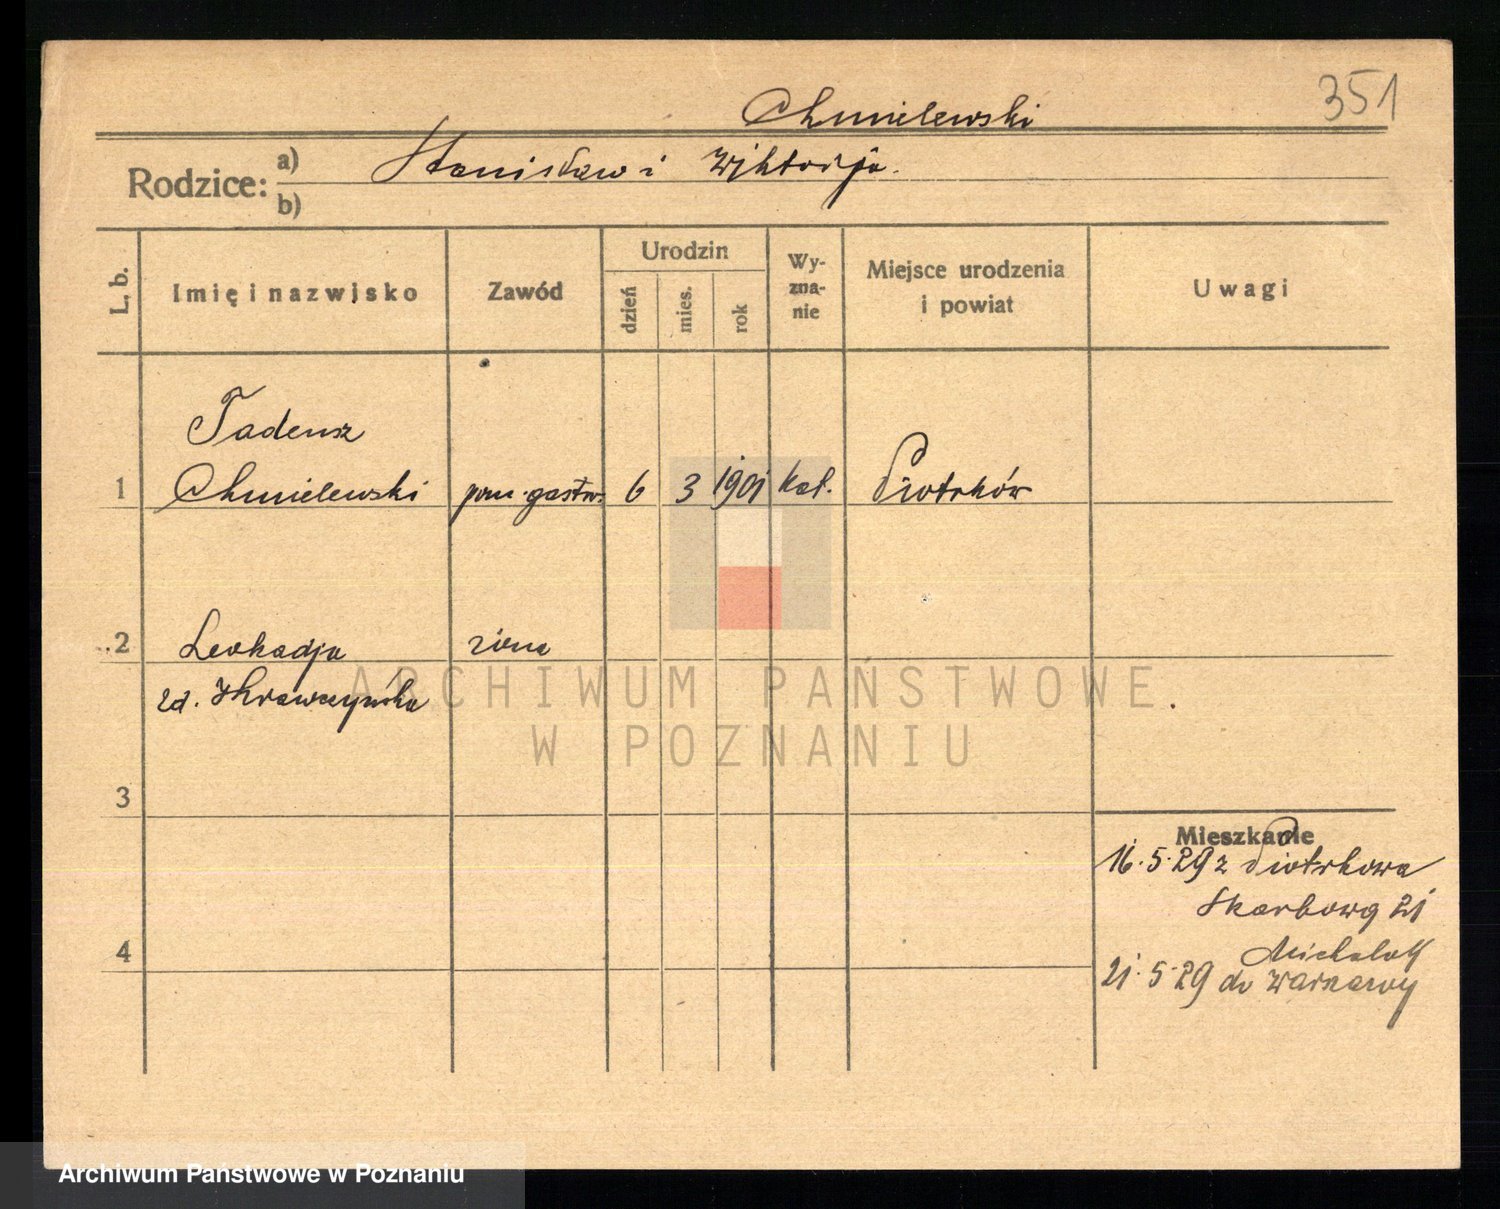 351
Chmielewski
Rodzice: a) Stanisław i Wiktorja.
b)
L. b. Imię i nazwisko Zawód Urodzin dzień mies. rok Wyznanie Miejsce urodzenia i powiat Uwagi
Tadeusz
1 Chmielewski pom. gastr. 6 3 1901 kat. Piotrków
2 Leokadja żona
zd. Krawczyńska
ARCHIWUM PAŃSTWOWE
W POZNANIU
3
Mieszkanie
16.5.29 z Piotrkowa
Skarbowa 21
4
21.5.29 do Warszawy
Archiwum Państwowe w Poznaniu